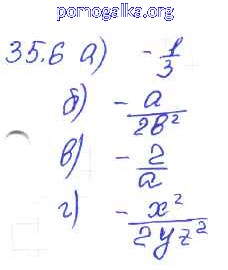 pomogalka.org
35.6 а) - 1/3
б) - a/2b²
в) - 2/a
г) - x²/2yz²